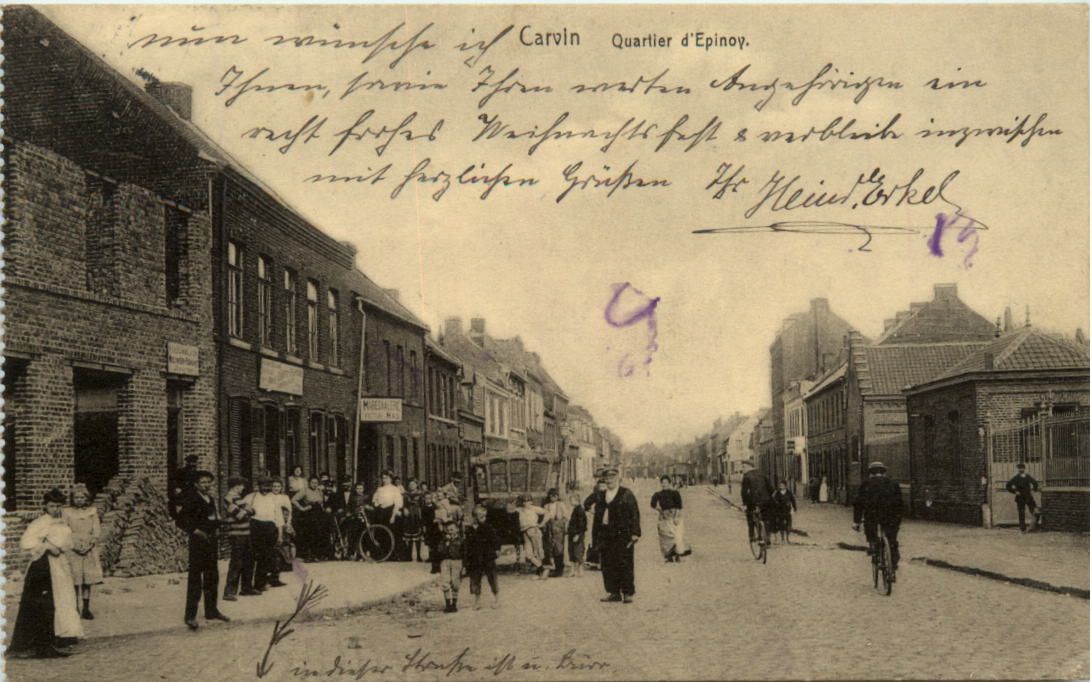 Carvin Quartier d'Epinoy.
nun wünsche ich
Ihnen, sowie Ihren werten Angehörigen ein
recht frohes Weihnachtsfest & verbleibe inzwischen
mit herzlichen Grüßen Ihr
MARECHALERIE
in dieser Straße ist u. Büro